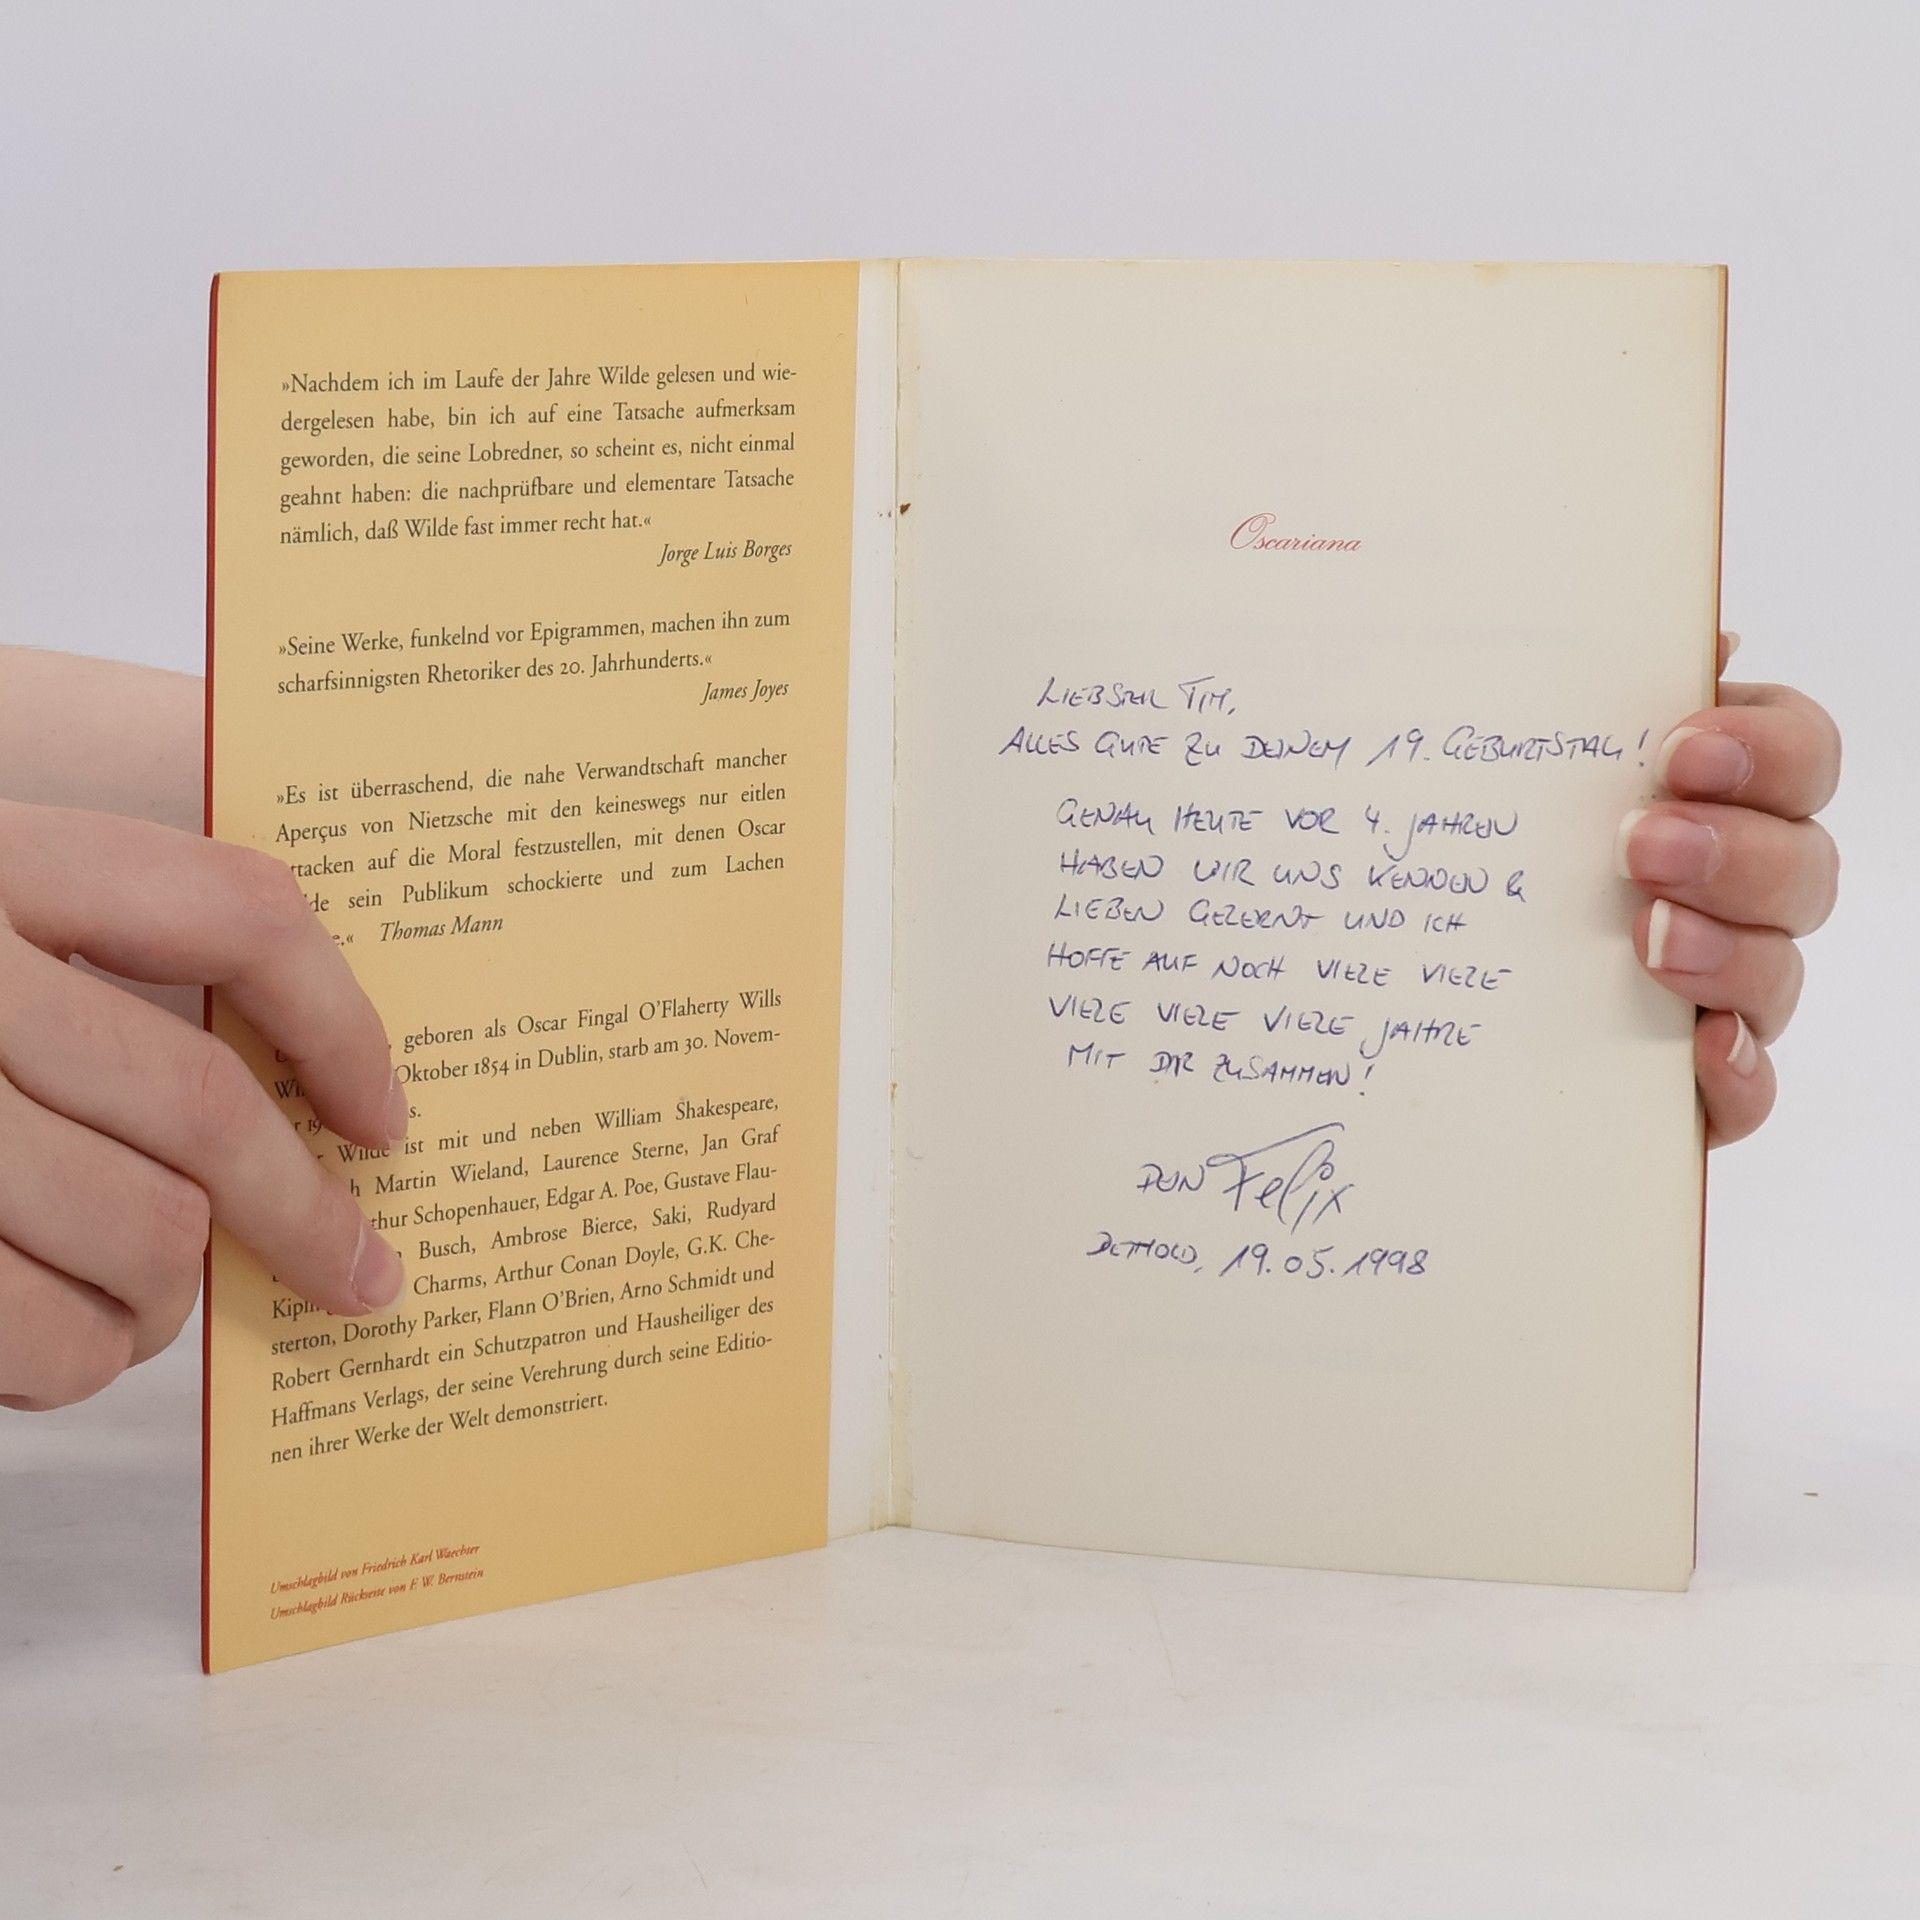 »Nachdem ich im Laufe der Jahre Wilde gelesen und wie-
dergelesen habe, bin ich auf eine Tatsache aufmerksam
geworden, die seine Lobredner, so scheint es, nicht einmal
geahnt haben: die nachprüfbare und elementare Tatsache
nämlich, daß Wilde fast immer recht hat.«
Jorge Luis Borges
»Seine Werke, funkelnd vor Epigrammen, machen ihn zum
scharfsinnigsten Rhetoriker des 20. Jahrhunderts.«
James Joyes
»Es ist überraschend, die nahe Verwandtschaft mancher
Aperçus von Nietzsche mit den keineswegs nur eitlen
ttacken auf die Moral festzustellen, mit denen Oscar
de sein Publikum schockierte und zum Lachen
e.« Thomas Mann
, geboren als Oscar Fingal O'Flaherty Wills
Oktober 1854 in Dublin, starb am 30. Novem-
s.
Wilde ist mit und neben William Shakespeare,
h Martin Wieland, Laurence Sterne, Jan Graf
thur Schopenhauer, Edgar A. Poe, Gustave Flau-
Busch, Ambrose Bierce, Saki, Rudyard
Charms, Arthur Conan Doyle, G.K. Che-
sterton, Dorothy Parker, Flann O'Brien, Arno Schmidt und
Robert Gernhardt ein Schutzpatron und Hausheiliger des
Haffmans Verlags, der seine Verehrung durch seine Editio-
nen ihrer Werke der Welt demonstriert.
Umschlagbild von Friedrich Karl Waechter
Umschlagbild Rückseite von F. W. Bernstein
Oscariana
LIEBSTER TIM,
ALLES GUTE ZU DEINEM 19. GEBURTSTAG!
GENAU HEUTE VOR 4. JAHREN
HABEN WIR UNS KENNEN &
LIEBEN GELERNT UND ICH
HOFFE AUF NOCH VIELE VIELE
VIELE VIELE VIELE JAHRE
MIT DIR ZUSAMMEN!
DEIN Felix
DETMOLD, 19.05.1998